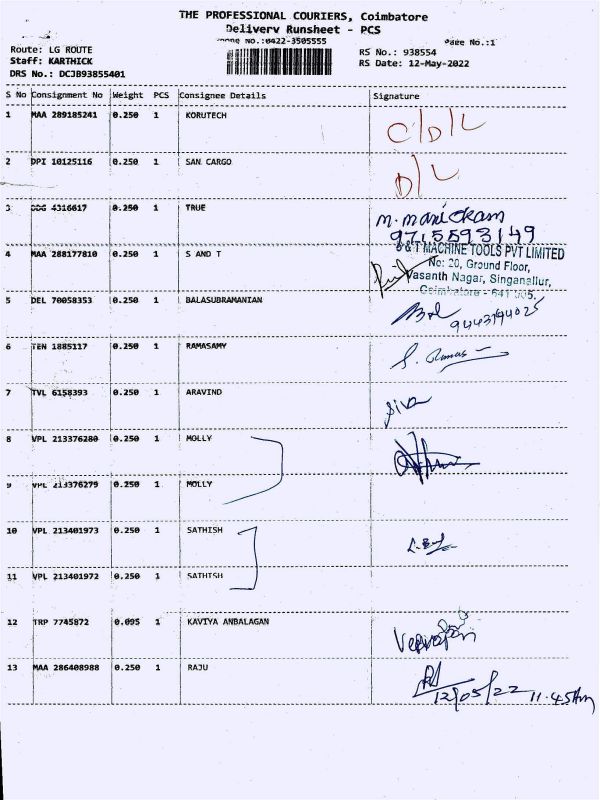 THE PROFESSIONAL COURIERS, Coimbatore
Delivery Runsheet - PCS
Phone No.:0422-3505555
Page No.:1
Route: LG ROUTE
RS No.: 938554
Staff: KARTHICK
RS Date: 12-May-2022
DRS No.: DCJB93855401
S No Consignment No Weight PCS Consignee Details Signature
1 MAA 289185241 0.250 1 KORUTECH C/D/L
2 DPI 10125116 0.250 1 SAN CARGO D/L
3 4316617 0.250 1 TRUE M. Manickam
9715593149
4 MAA 288177810 0.250 1 S AND T
S & T MACHINE TOOLS PVT LIMITED
No: 20, Ground Floor,
Vasanth Nagar, Singanallur,
Coimbatore - 641 005.
5 DEL 70058353 0.250 1 BALASUBRAMANIAN
9443194025
6 TEN 1885117 0.250 1 RAMASAMY
7 TVL 6158393 0.250 1 ARAVIND Siva
8 VPL 213376280 0.250 1 MOLLY
9 VPL 213376279 0.250 1 MOLLY
10 VPL 213401973 0.250 1 SATHISH
11 VPL 213401972 0.250 1 SATHISH
12 TRP 7745872 0.095 1 KAVIYA ANBALAGAN
13 MAA 286408988 0.250 1 RAJU
12/05/22 11.45Am